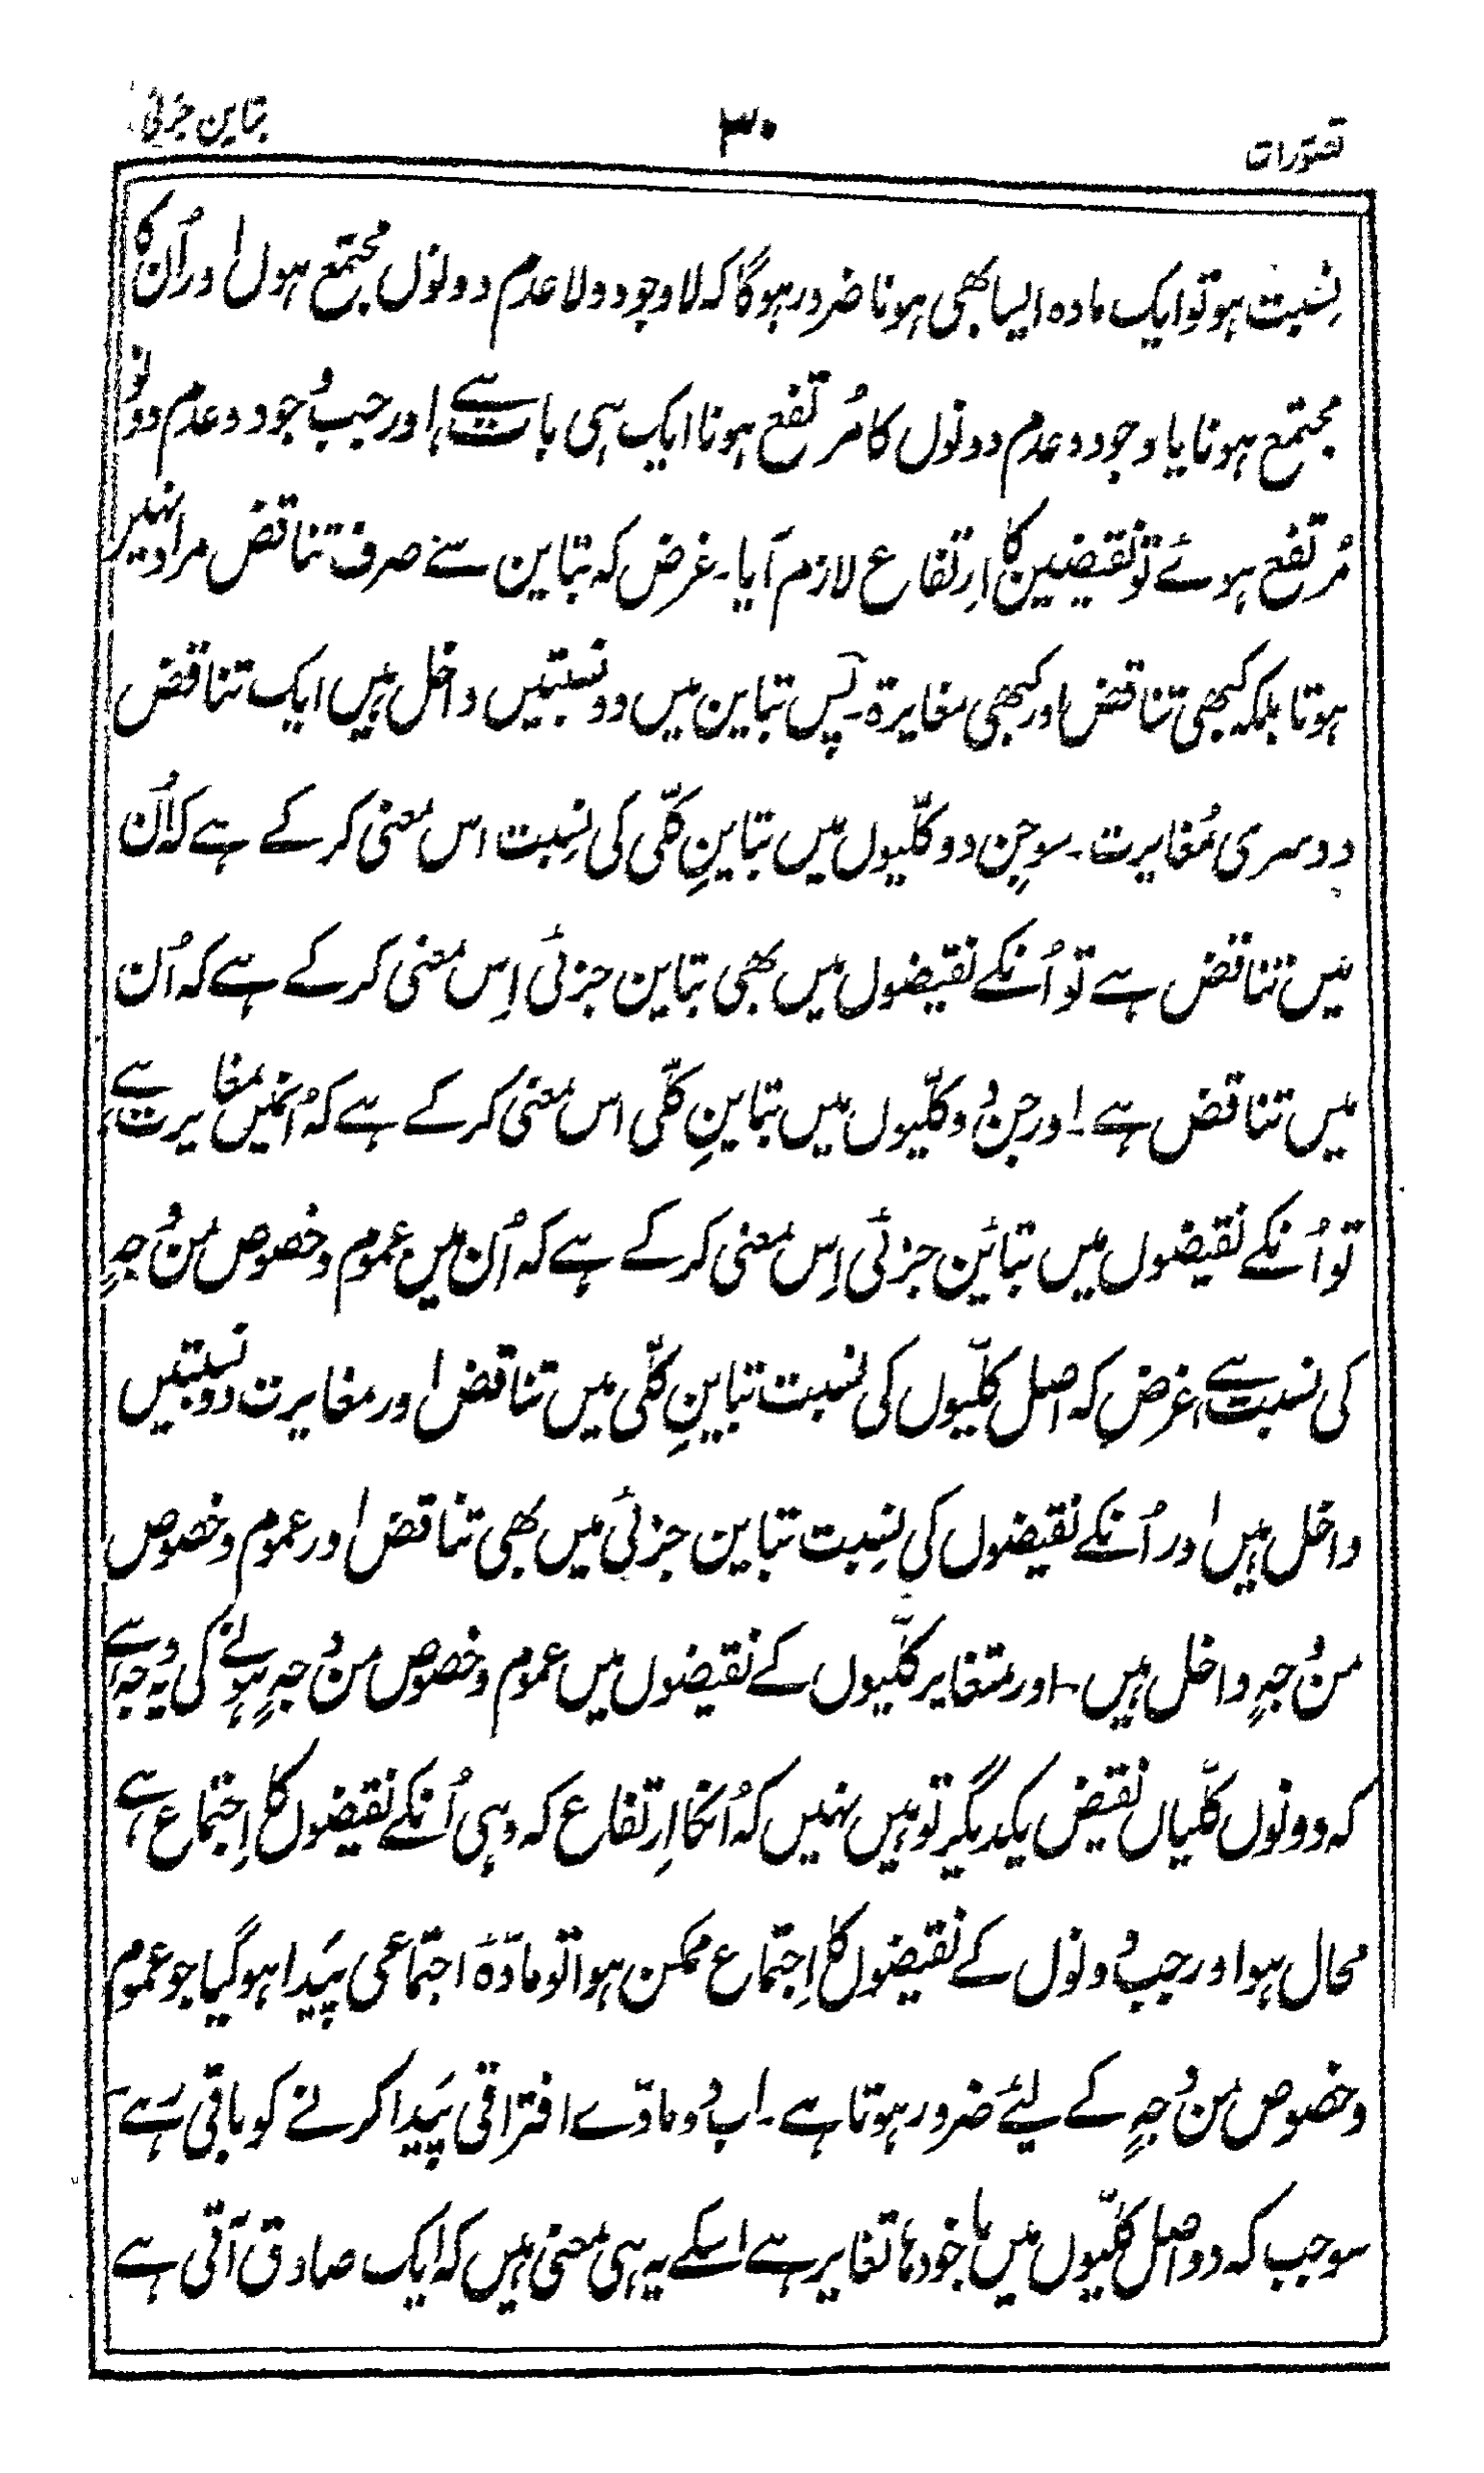 تصورات ۳۰ تباین جزئی
نِسبت ہو تو ایک مادہ ایسا بھی ہونا ضرور ہوگا کہ لا وجود و لا عدم دونوں مجتمع ہوں اور اُن کا
مجتمع ہونا یا وجود و عدم دونوں کا مُرتفع ہونا ایک ہی بات ہے اور جب وُجود و عدم دونو
مُرتفع ہوئے تو نقیضین کا اِرتفاع لازم آیا۔ غرض کہ تباین سے صرف تناقض مراد نہیں
ہوتا بلکہ کبھی تناقض اور کبھی مغایرۃ۔ پس تباین میں دو نسبتیں داخل ہیں ایک تناقض
دوسری مُغایرت۔ سو جن دو کلّیوں میں تباینِ کلّی کی نِسبت اس معنی کر کے ہے کہ اُن
میں تناقض ہے تو اُنکے نقیضوں میں بھی تباین جزئی اِس معنی کر کے ہے کہ اُن
میں تناقض ہے۔ اور جن دُو کلّیوں میں تباینِ کلّی اس معنی کر کے ہے کہ اُنمیں مغایرت ہے
تو اُنکے نقیضوں میں تبائن جزئی اِس معنی کر کے ہے کہ اُن میں عموم و خصوص من وُجہٍ
کی نسبت ہے، غرض کہ اصل کلّیوں کی نسبت تباینِ کلّی میں تناقض اور مغایرت دو نسبتیں
داخل ہیں اور اُنکے نقیضوں کی نِسبت تباین جزئی میں بھی تناقض اور عموم و خصوص
من وُجہٍ داخل ہیں۔ اور متغایر کلّیوں کے نقیضوں میں عموم و خصوص من وُجہٍ ہونے کی یہ وُجہ ہے
کہ دونوں کلّیاں نقیض یکدیگر تو ہیں نہیں کہ اُنکا اِرتفاع کہ وہی اُنکے نقیضوں کا اِجتماع ہے
محال ہو اور جب دُونوں کے نقیضوں کا اِجتماع ممکن ہوا تو مادّہٴ اجتماعی پَیدا ہو گیا جو عموم
و خصوص من وُجہٍ کے لئے ضرور ہوتا ہے۔ اب دُو مادّے افتراقی پَیدا کرنے کو باقی رہے
سو جب کہ دو اصل کلّیوں میں ماخودہا تغایر ہے اسکے یہ ہی معنی ہیں کہ ایک صادق آتی ہے